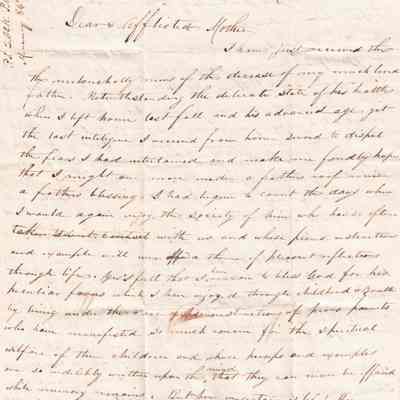 Dear & Afflicted Mother
I have just received the
the melancholly news of the decease of my much loved
father. Notwithstanding the delicate state of his health
when I left home last fall and his advanced age, yet
the last inteligence I received from home served to dispel
the fears I had entertained and make me fondly hope
that I might once more under a fathers roof receive
a fathers blessing. I had begun to count the days when
I would again enjoy the society of him who has so often
taken sweet counsel with us and whose pious instruction
and example will ever afford a theme of pleasant reflections
through life. Yes I feel that I have reason to bless God for his
peculiar favors which I have enjoyed through childhood & youth
by being under the care & instructions of pious parents
who have manifested so much concern for the spiritual
welfare of their children and whose precepts and examples
are so indelibly written upon the mind that they can never be effaced
while memory remains. But how uncertain is life!